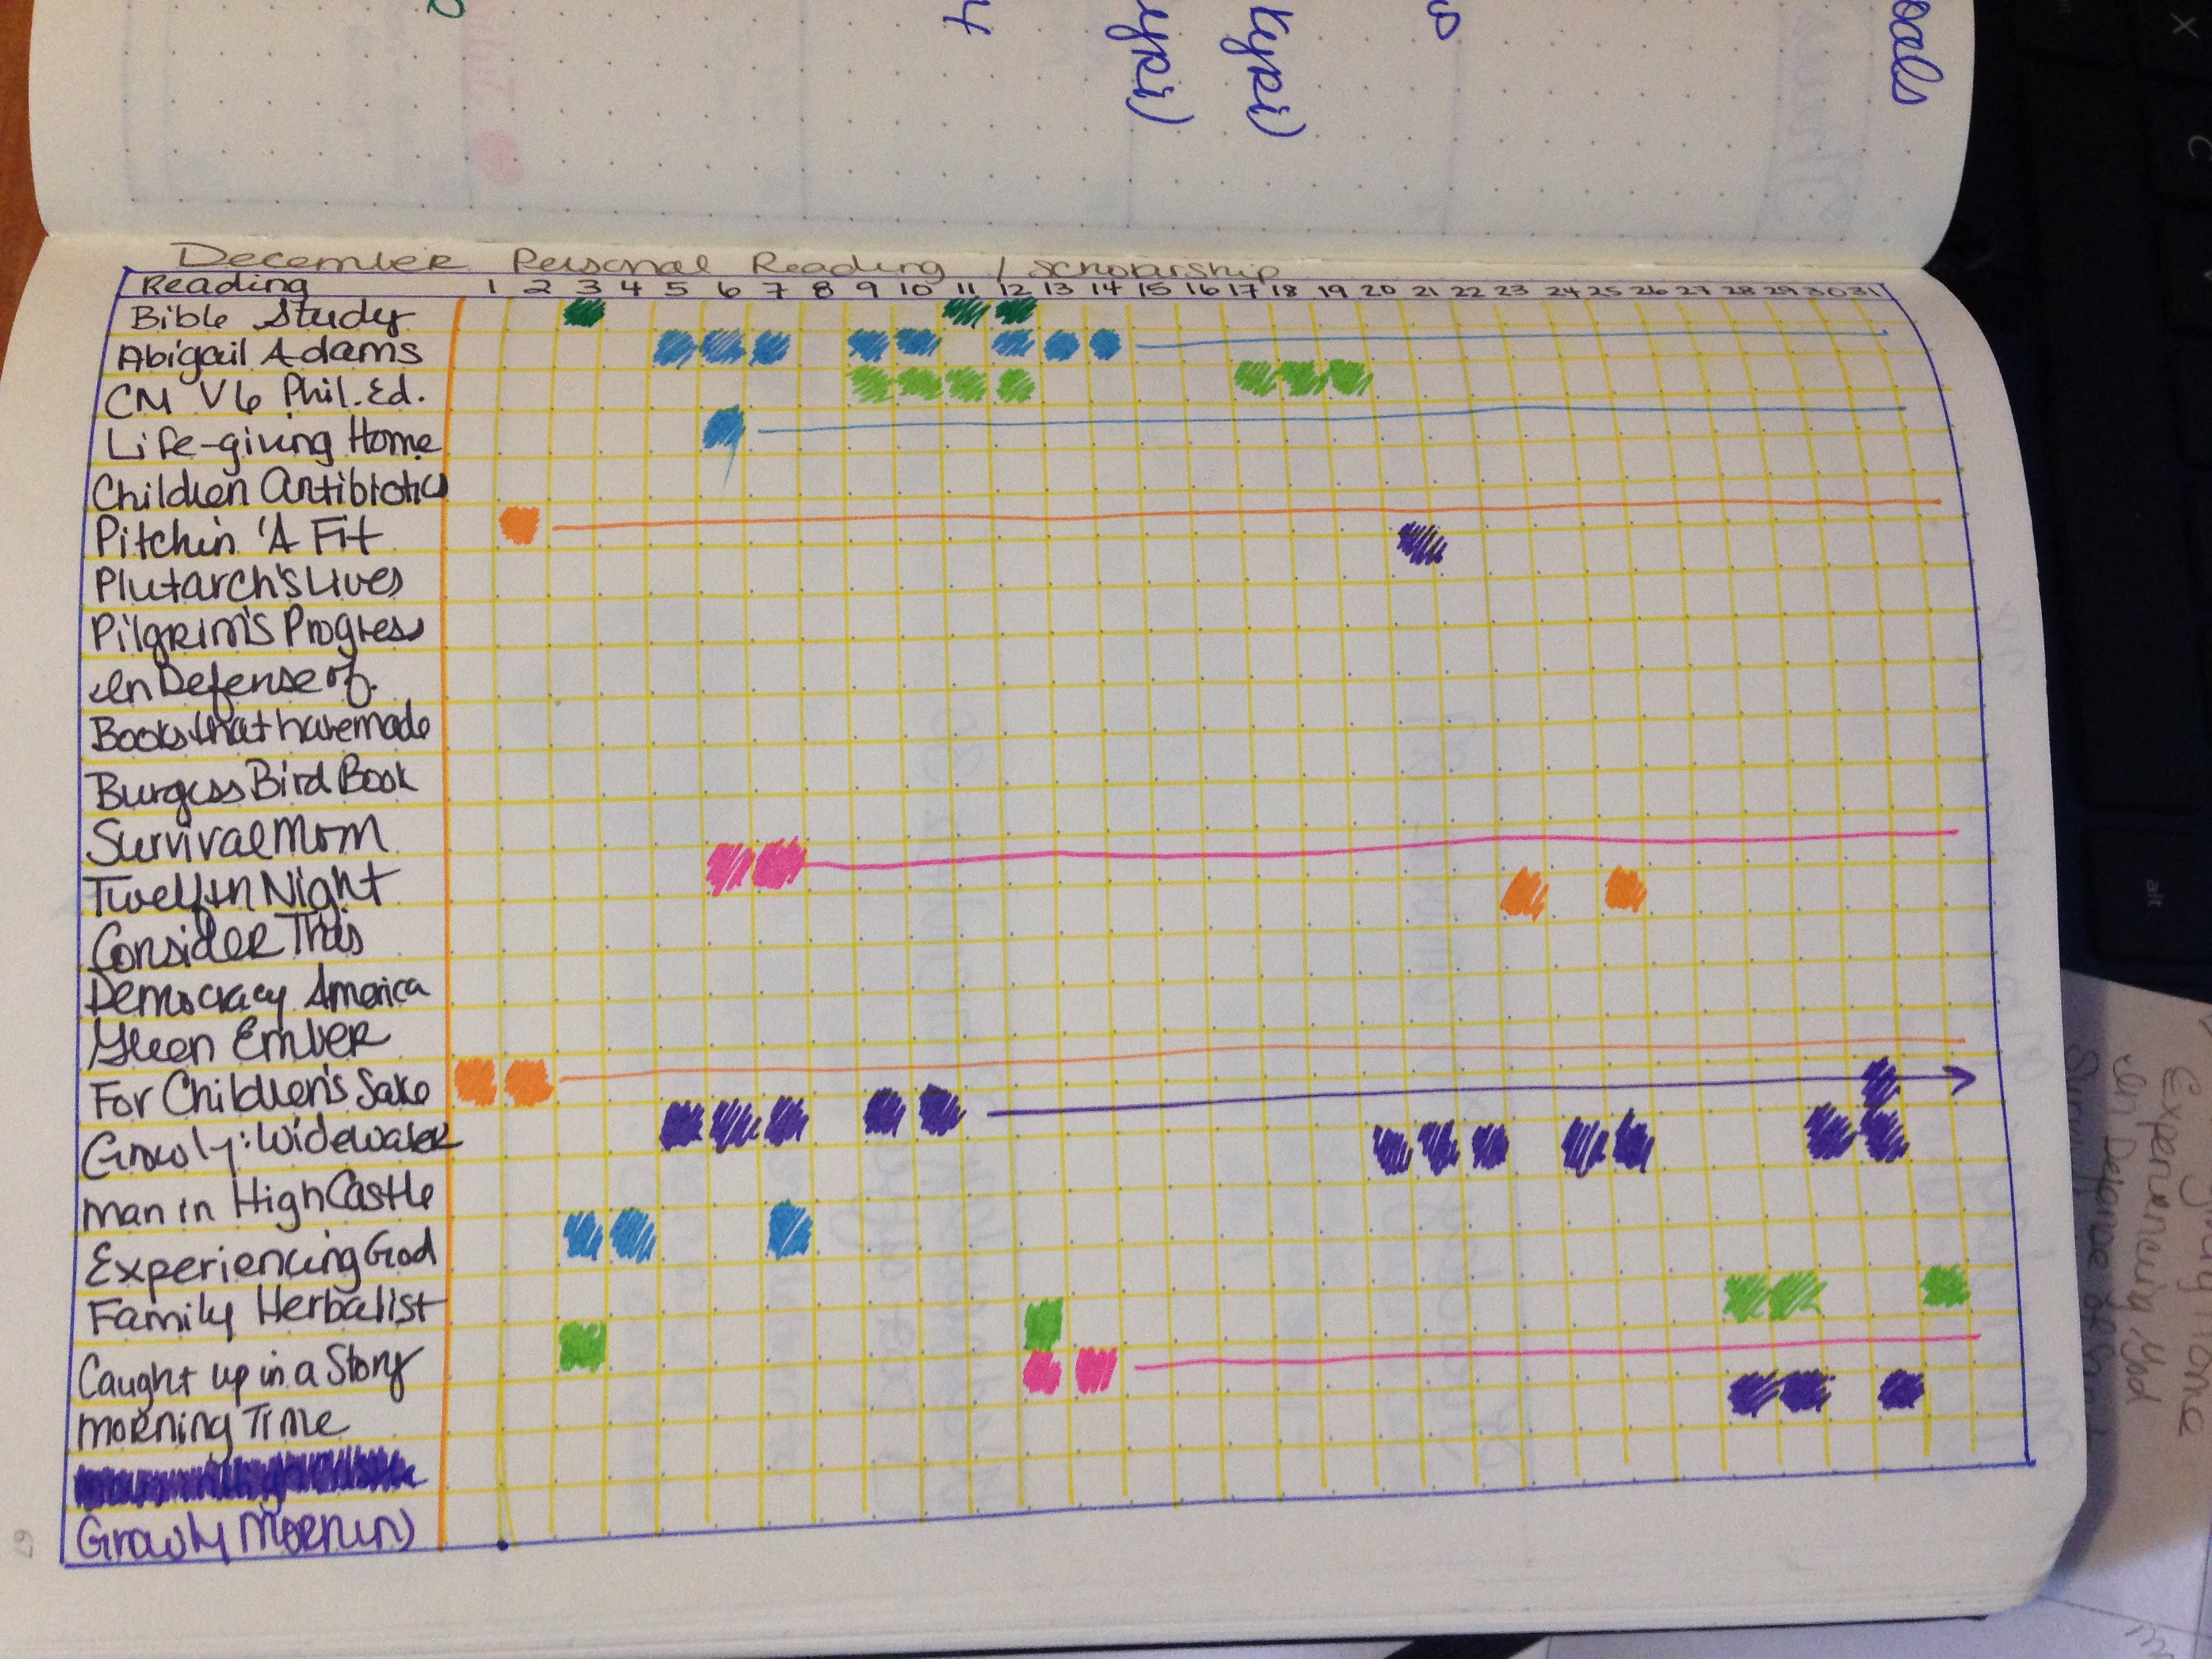 ypi)
Kypi)
4
oals
December Personal Reading / Scholarship
Reading 1 2 3 4 5 6 7 8 9 10 11 12 13 14 15 16 17 18 19 20 21 22 23 24 25 26 27 28 29 30 31
Bible Study
Abigail Adams
CM V6 Phil. Ed.
Life-giving Home
Children Antibiotics
Pitchin 'A Fit
Plutarch's Lives
Pilgrim's Progress
In Defense of.
Books that have made
Burgess Bird Book
Survival Mom
Twelfth Night
Consider This
Democracy America
Green Ember
For Children's Sake
Growly: Widewater
Man in High Castle
Experiencing God
Family Herbalist
Caught up in a Story
Morning Time
Growly Mornin)
67
Experiencing God
In Defense of
X
C
alt